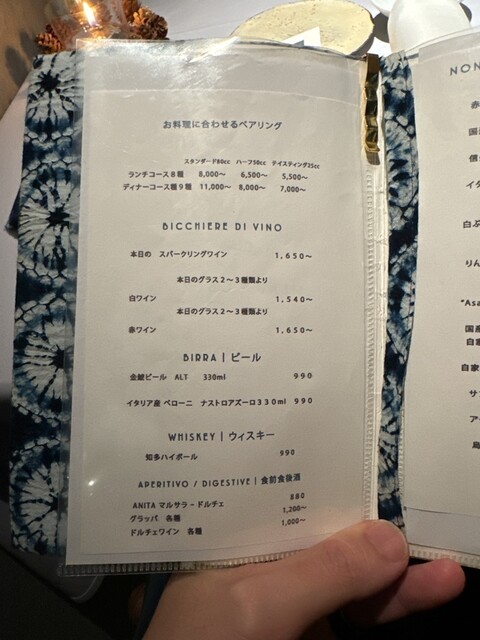 お料理に合わせるペアリング
スタンダード80cc ハーフ50cc テイスティング25cc
ランチコース8種 8,000〜 6,500〜 5,500〜
ディナーコース種9種 11,000〜 8,000〜 7,000〜
BICCHIERE DI VINO
本日の スパークリングワイン 1,650〜
本日のグラス2〜3種類より
白ワイン 1,540〜
本日のグラス2〜3種類より
赤ワイン 1,650〜
BIRRA | ビール
金鯱ビール ALT 330ml 990
イタリア産 ペローニ ナストロアズーロ330ml 990
WHISKEY | ウィスキー
知多ハイボール 990
APERITIVO / DIGESTIVE | 食前食後酒
ANITA マルサラ - ドルチェ 880
グラッパ 各種 1,200〜
ドルチェワイン 各種 1,000〜
NON
赤
国産
イタ
白ぶ
りん
"Asa
国産
自家
自家
サン